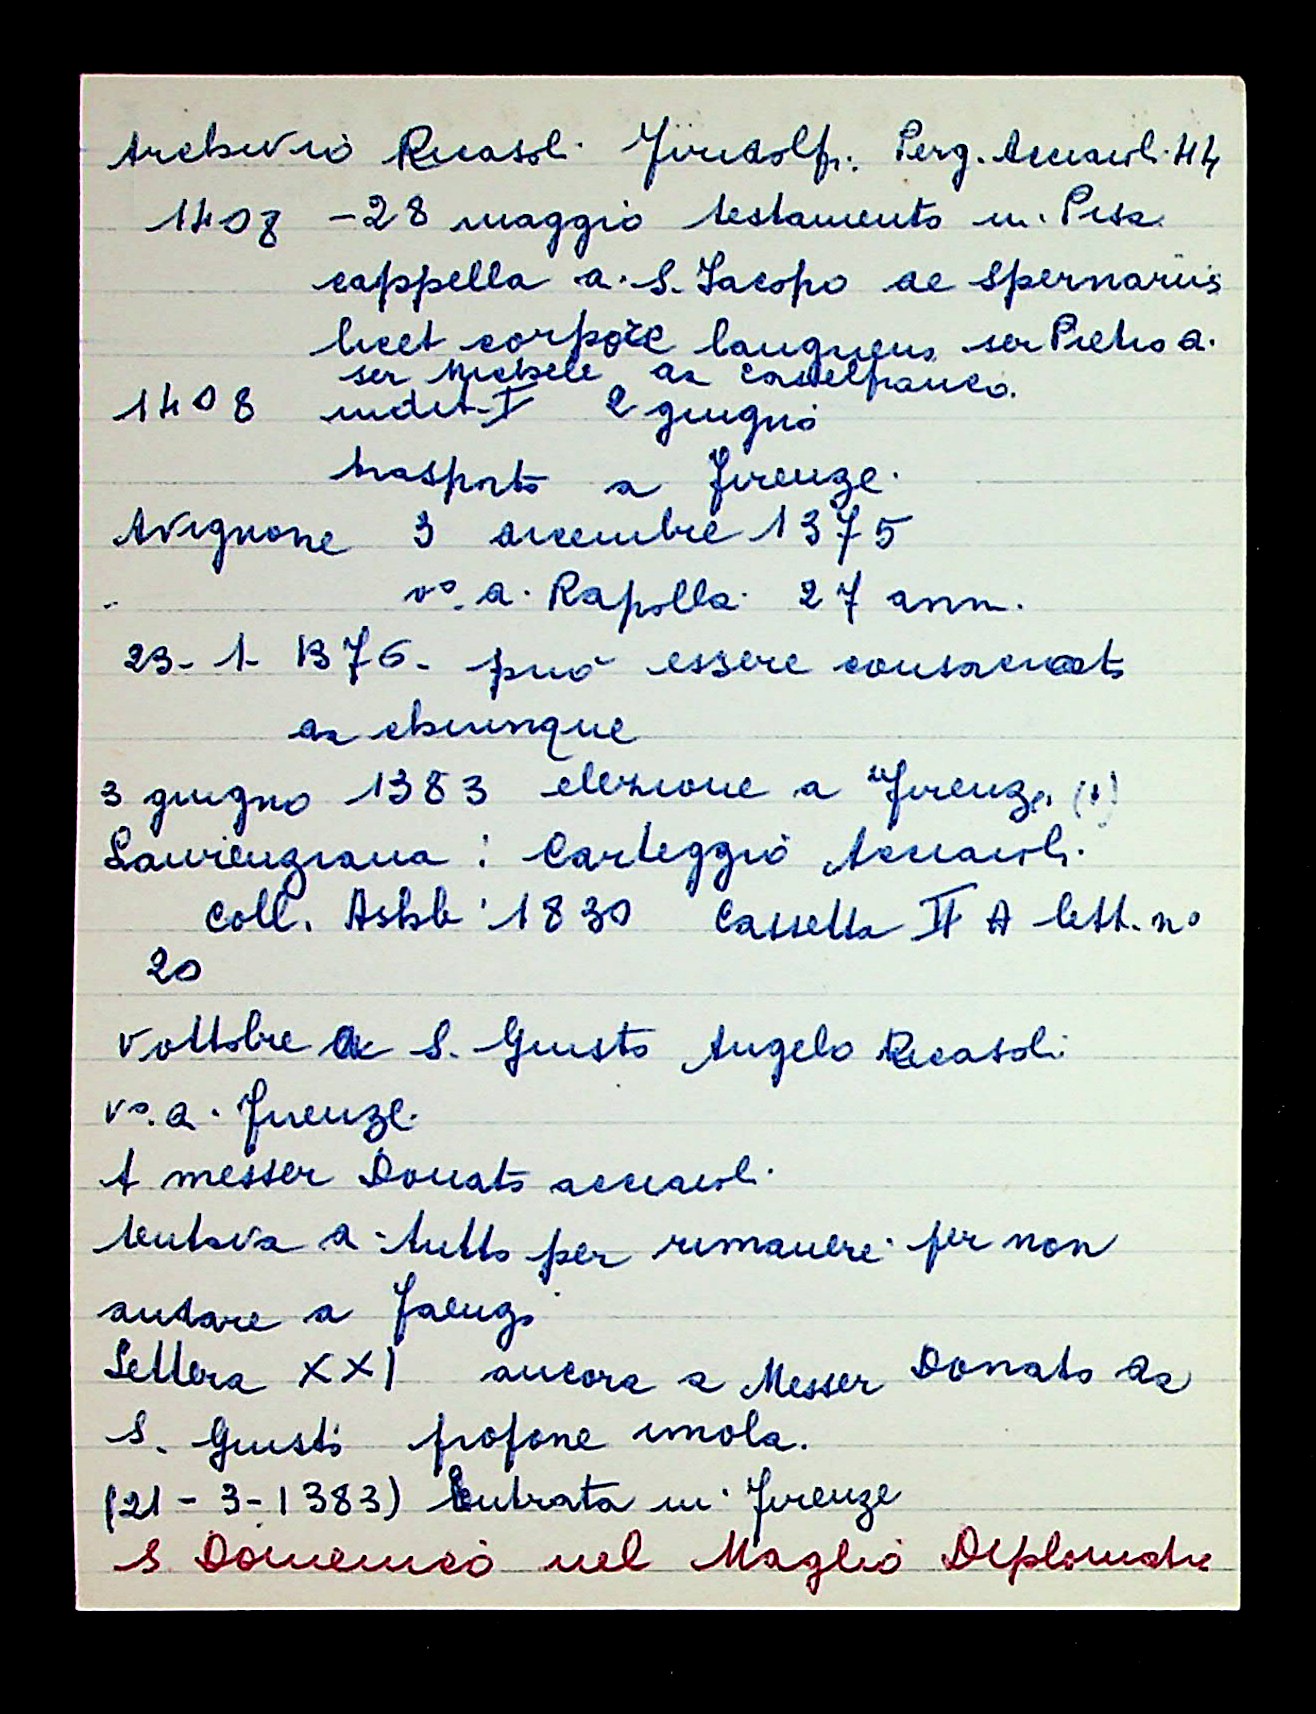 Archivio Ricasoli Firidolfi. Perg. Acciaioli. 44
1408 - 28 maggio testamento in Pisa
cappella di S. Jacopo de Spernariis
licet corpore languens ser Pietro di
ser Michele da Castelfranco.
1408 indit. I 2 giugno
trasporto a Firenze.
Avignone 3 dicembre 1375
vo. di Rapolla 27 anni.
23- 1- 1376- può essere consacrato
da chiunque
3 giugno 1383 elezione a Firenze (1)
Laurenziana : Carteggio Acciaioli
coll. Ashb. 1830 Cassetta II A lett. no
20
V ottobre da S. Giusto Angelo Ricasoli
vo. di Firenze.
A messer Donato acciaioli
tentava di tutto per rimanere per non
andare a Faenza
Lettera XXI ancora a Messer Donato da
S. Giusto propone imola.
(21 - 3 - 1383) Entrata in Firenze
S. Domenico nel Maglio Diplomatic